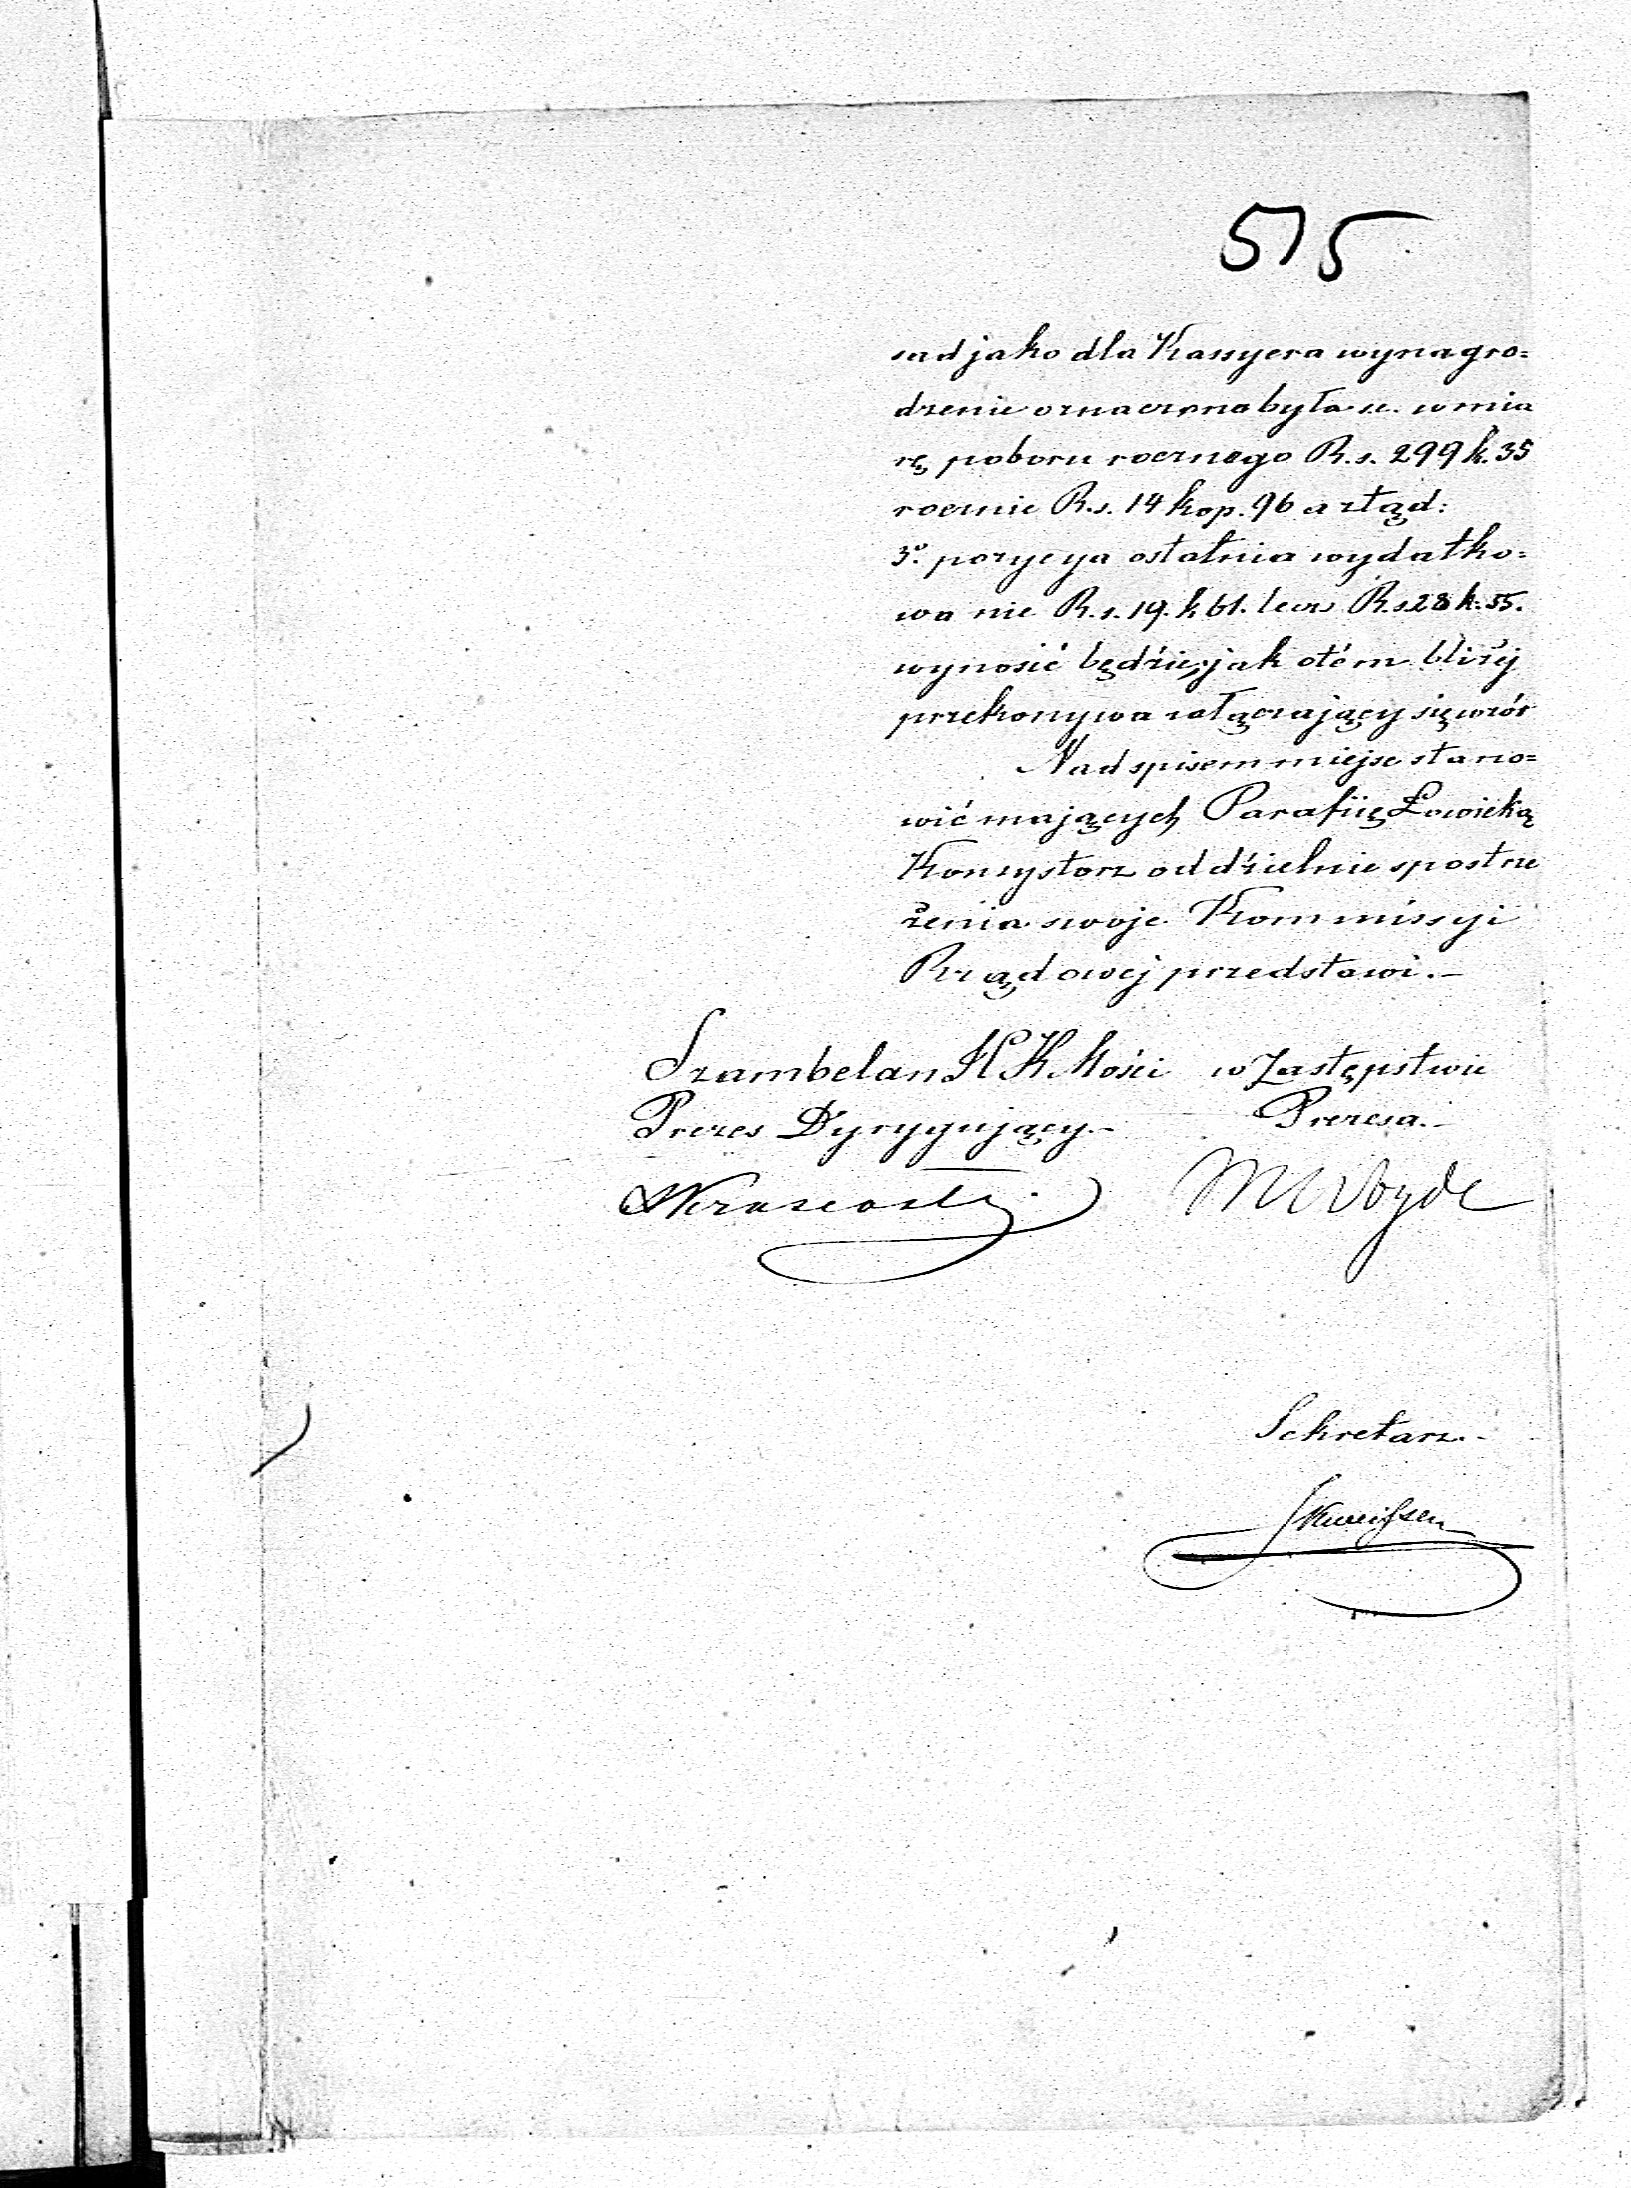 515
sad jako dla Kassyera wynagro=
dzenie oznaczone było w mia
rę poboru rocznego R.s. 299 k. 35
rocznie R.s. 14 kop. 96 a ztąd:
3º pozycya ostatnia wydatko=
wa nie R.s. 19. k 61. lecz R.s 28 k. 55.
wynosić będzie, jak o tém bliżéj
przekonywa załączający się wzór
Nad spisem miejsc stano=
wić mających Parafiię Łowicką
Konsystorz oddzielnie spostrze
żenia swoje Kommissyi
Rządowej przedstawi.-
Szambelan J K Mości w Zastępstwie
Prezes Dyrygujący.- Prezesa.-
Sekretarz.-